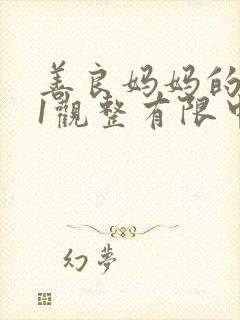 善良妈妈的
1觀整有限中
幻夢